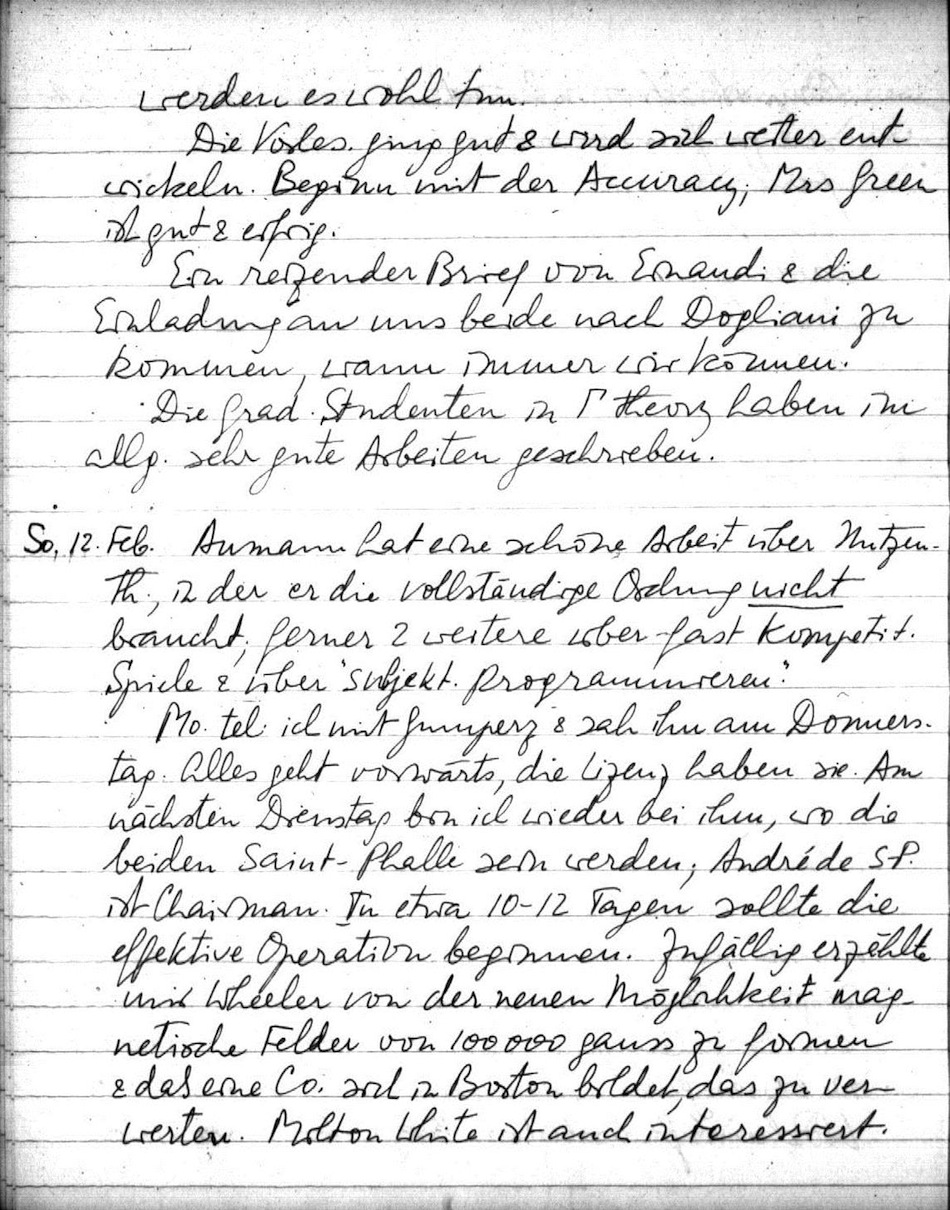 werden es wohl tun.
Die Vorles. ging gut & wird sich weiter ent-
wickeln. Beginn mit der Accuracy; Mrs Green
ist gut & eifrig.
Ein reizender Brief von Einaudi & die
Einladung an uns beide nach Dogliani zu
kommen, wann immer wir können.
Die Grad. Studenten in Γ theory haben im
allg. sehr gute Arbeiten geschrieben.
So, 12. Feb. Aumann hat eine schöne Arbeit über Nutzen-
Th., in der er die vollständige Ordnung nicht
braucht; ferner 2 weitere über fast kompetit.
Spiele & über "subjekt. programmieren."
Mo. tel. ich mit Gumperz & sah ihn am Donners-
tag. Alles geht vorwärts, die Lizenz haben sie. Am
nächsten Dienstag bin ich wieder bei ihm, wo die
beiden Saint-Phalle sein werden; André de S-P.
ist Chairman. In etwa 10-12 Tagen sollte die
effektive Operation beginnen. Zufällig erzählte
mir Wheeler von der neuen Möglichkeit mag-
netische Felder von 100000 gauss zu formen
& daß eine Co. sich in Boston bildet, das zu ver-
werten. Milton White ist auch interessiert.